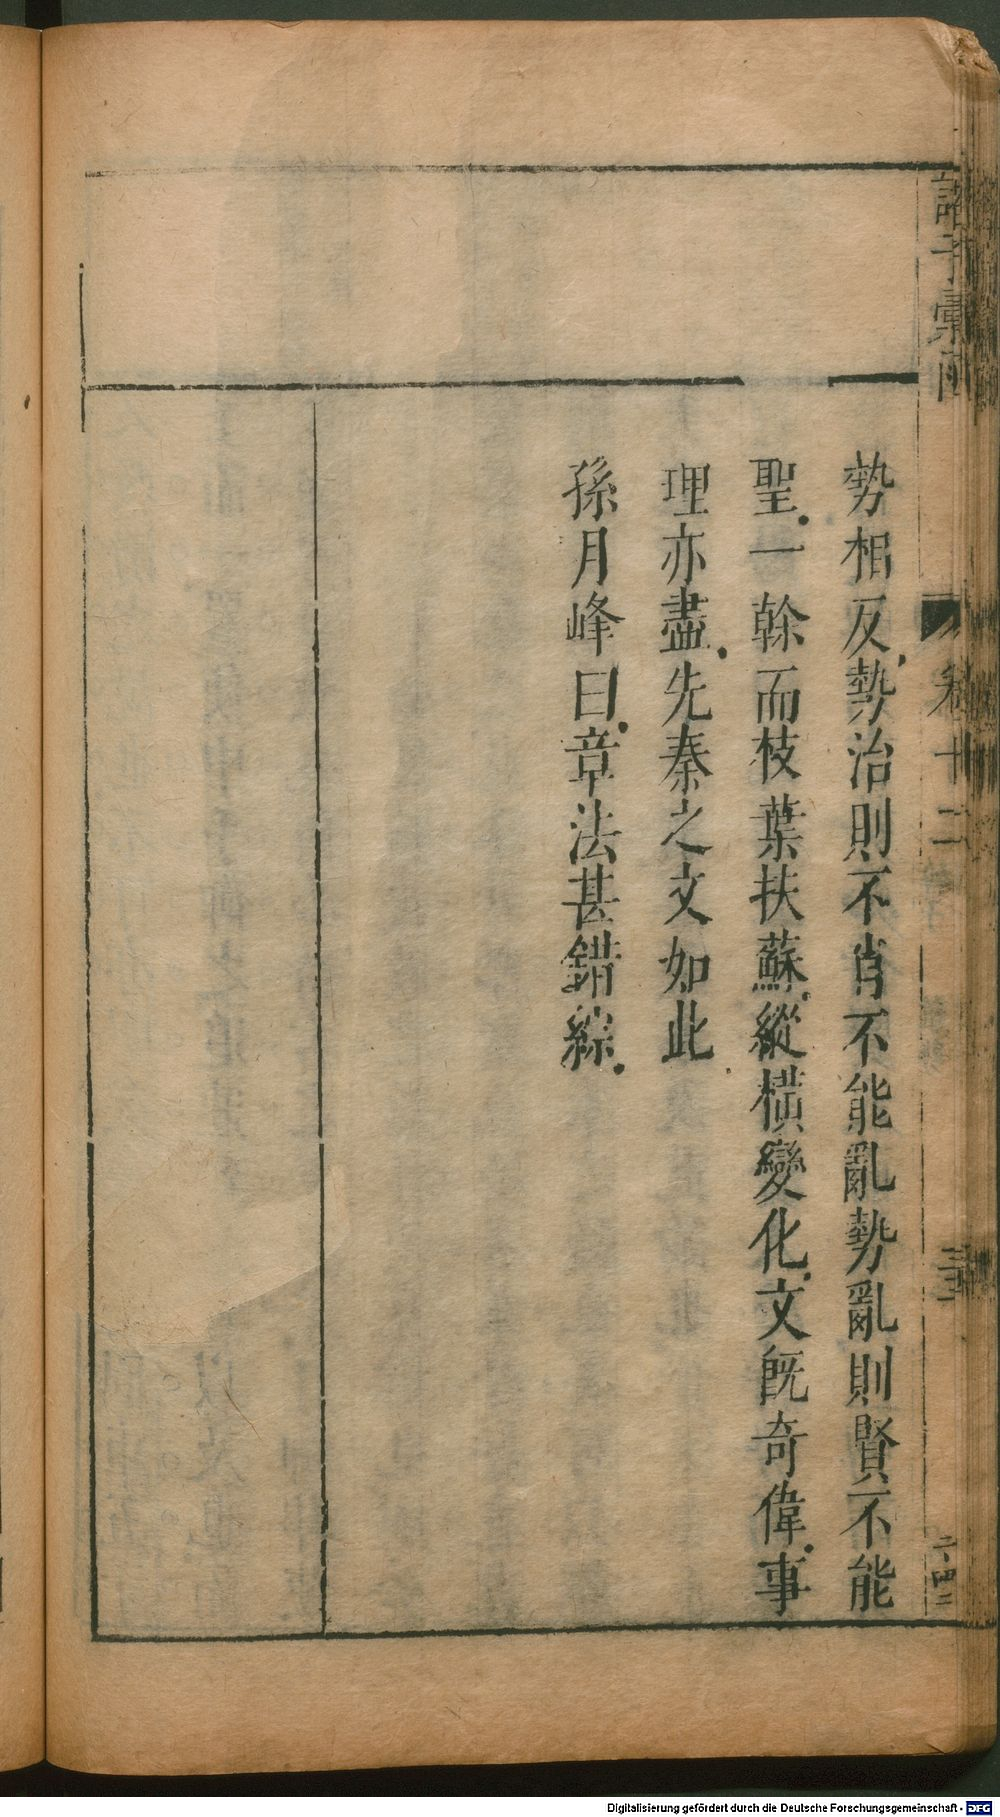 諸子彙函
卷十二
二四二
勢相反勢治則不肖不能亂勢亂則賢不能
聖一幹而枝葉扶蘇縱橫變化文旣奇偉事
理亦盡先秦之文如此
孫月峰曰章法甚錯綜
Digitalisierung gefördert durch die Deutsche Forschungsgemeinschaft - DFG